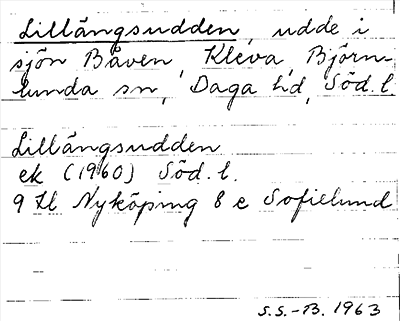 Lillängsudden, udde i
sjön Båven, Kleva, Björn-
lunda sn, Daga hd, Söd. l.
Lillängsudden
ek (1960) Söd. l.
9 H Nyköping 8 e Sofielund
S.S.-B. 1963